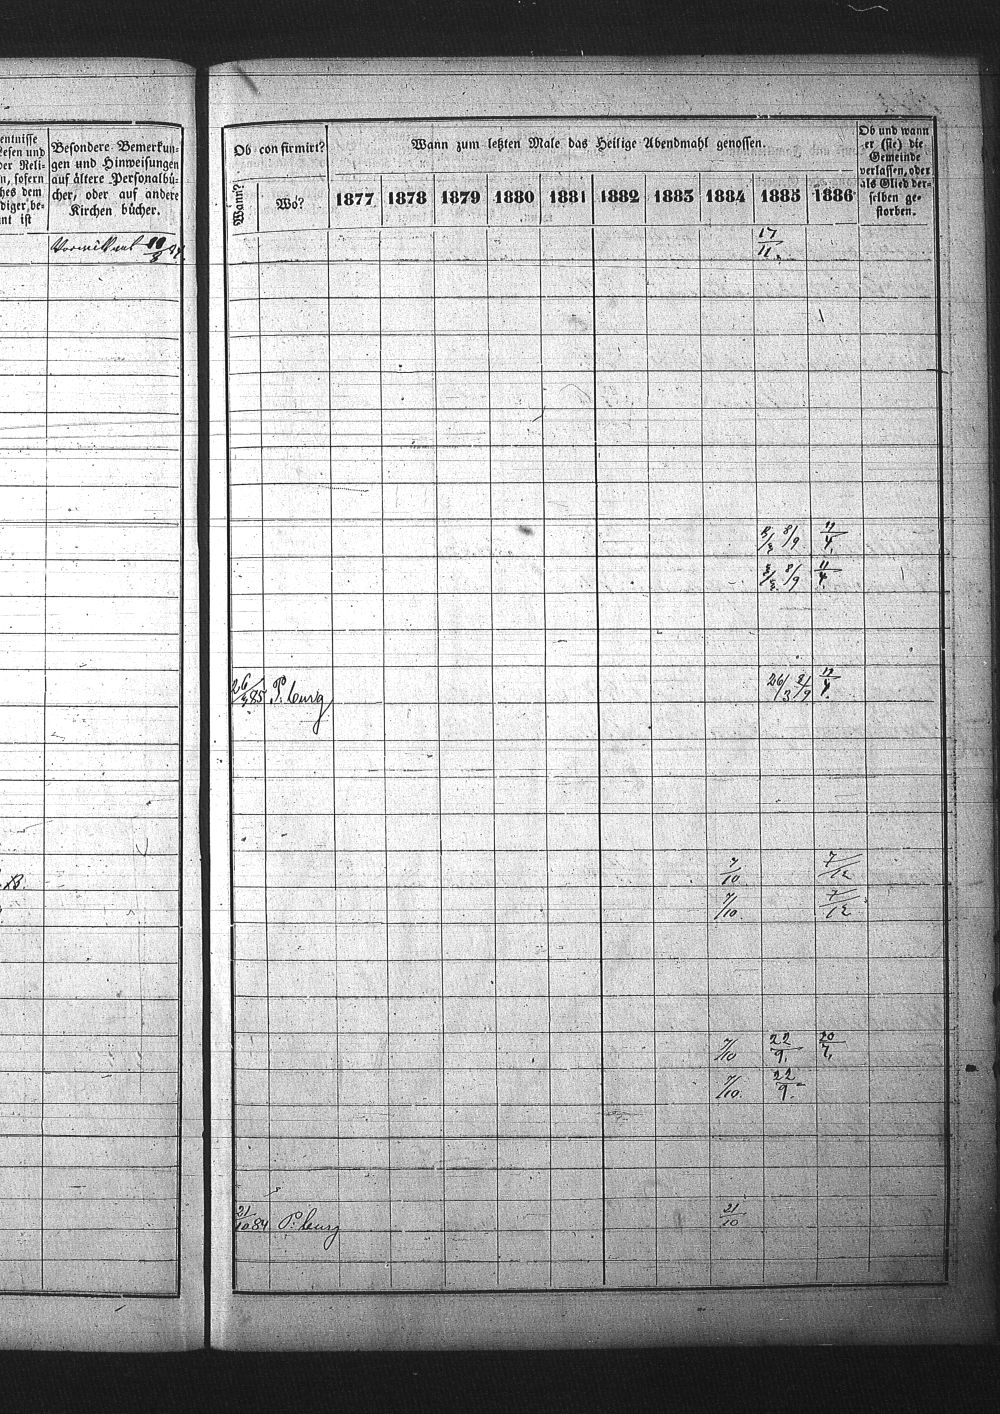 entnisse
Lesen und
der Reli-
n, sofern
hes dem
diger be-
nt ist
Besondere Bemerkun-
gen und Hinweisungen
auf ältere Personalbü-
cher, oder auf andere
Kirchen bücher.
B.
Ob confirmirt?
Wann?
Wo?
Wann zum letzten Male das Heilige Abendmahl genossen.
1877 1878 1879 1880 1881 1882 1883 1884 1885 1886
Ob und wann
er (sie) die
Gemeinde
verlassen, oder
als Glied der-
selben ge-
storben.
17/11.
8/9 11/4.
8/9 11/4.
26/3 85 P. burg 26/3 8/9 11/4.
7/10 7/12
7/10. 7/12
7/10 22/9. 20/7.
7/10. 22/9.
21/10 84 P. burg 21/10